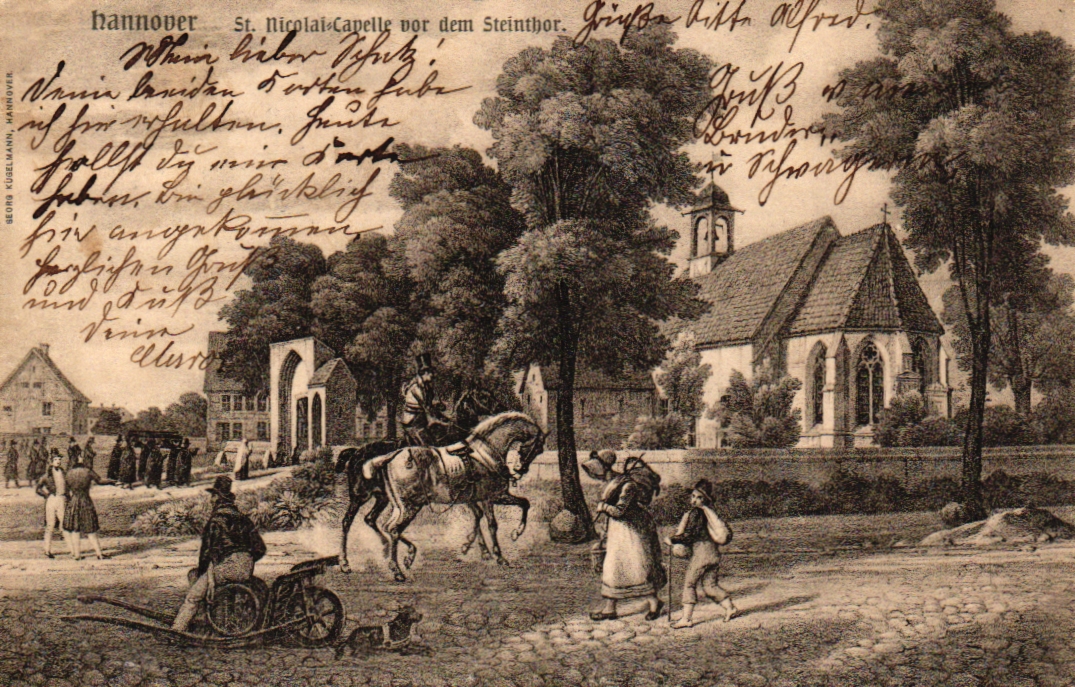 Hannover St. Nicolai-Capelle vor dem Steinthor.
Grüße bitte Alfred.
Mein lieber Schatz!
Deine beiden Karten habe
ich hier erhalten. Heute
sollst du eine Karte
haben. Bin glücklich
hier angekommen.
Herzlichen Gruß
und Kuß
Deine
Gruß
Bruder
u Schwager
GEORG KUGELMANN, HANNOVER.